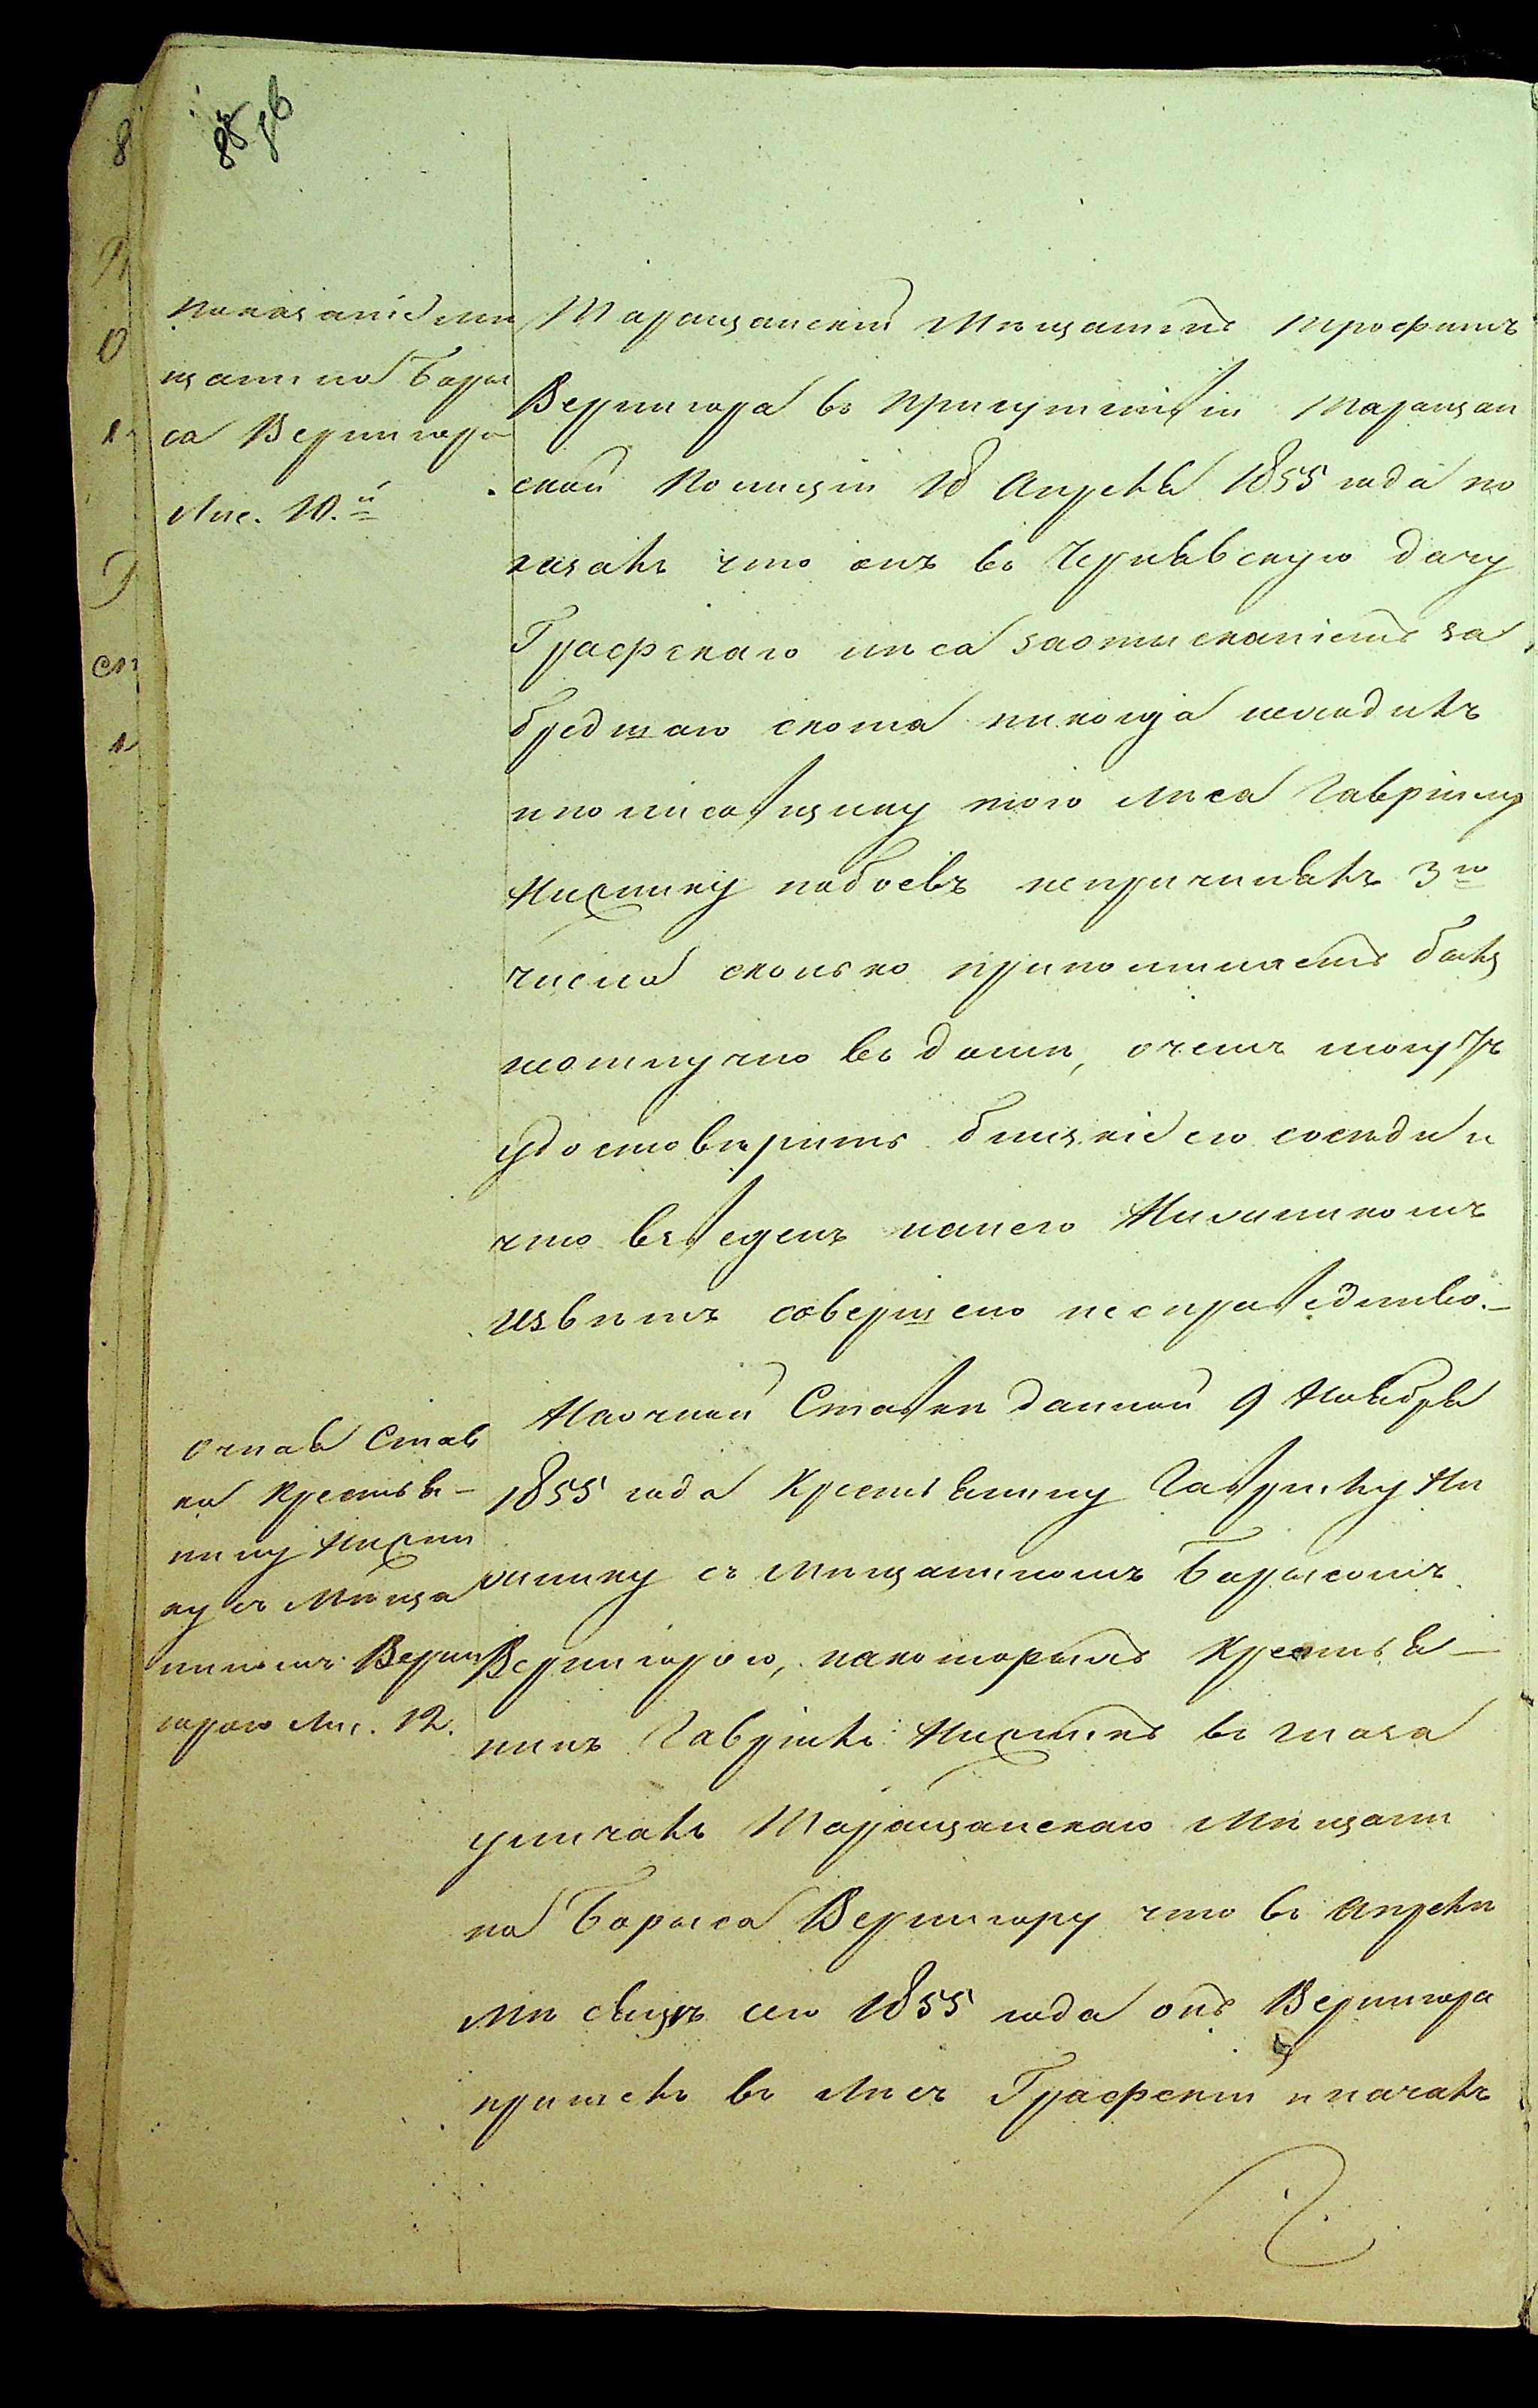 88 86
Показаніе мѣ
щанина Бары
са Вернигоры
Лис. 10.й
Таращанскій Мѣщанинъ Трофимъ
Вернигора въ присутствіи Таращан
ской Полиціи 18 Апрѣля 1855 года по
казалъ что онъ въ Чернявскую дачу
Графскаго лѣса заотысканіемъ за
бредшаго скота никогда неходилъ
и полѣсовщику того лѣса Гаврілу
побоевъ непричинялъ 3го
числа сколько припоминаетъ былъ
неотлучно въ доми, очемъ могутъ
удостовѣрить близкіе его сосѣди и
что взведенъ нанего
извѣтъ совершено несправедливо.—
Очная Став
ка Крестья-
нину
ку съ Мѣща
ниномъ Верни
горою Лис. 12.
Наочной Ставки данной 9 Ноября
1855 года Крестьянину Гаврилу
съ Мѣщаниномъ Барысомъ
Вернигорою, накоторыхъ Крестья-
нинъ Гаврилъ въ глаза
уличалъ Таращанскаго Мѣщани
на Барыса Вернигору что въ Апрѣли
мѣсяцѣ сего 1855 года онъ Вернигора
пришелъ въ Лѣсъ Графскій и началъ